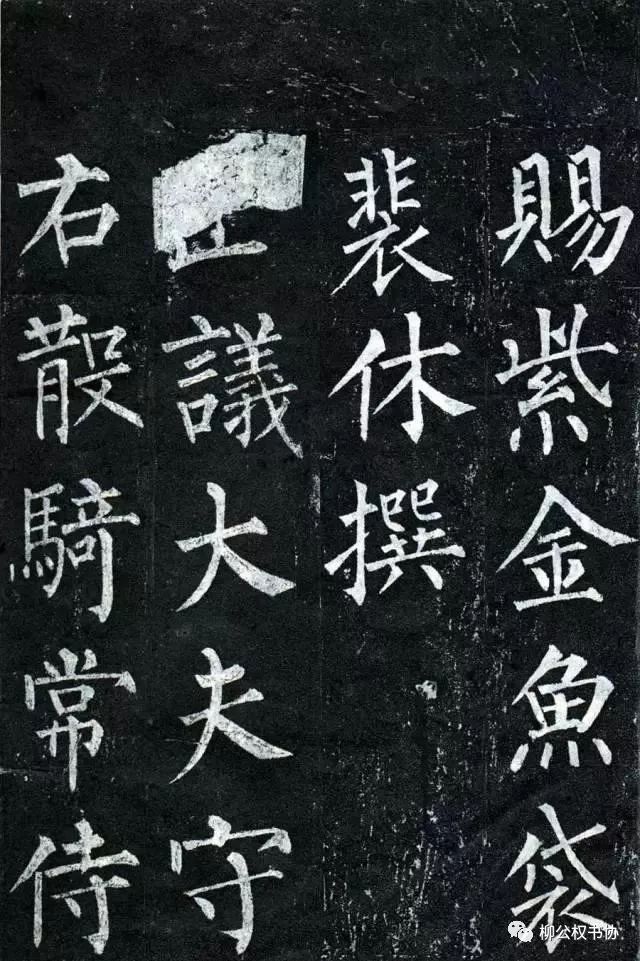 賜紫金魚袋
裴休撰
正議大夫守
右散騎常侍
柳公权书协